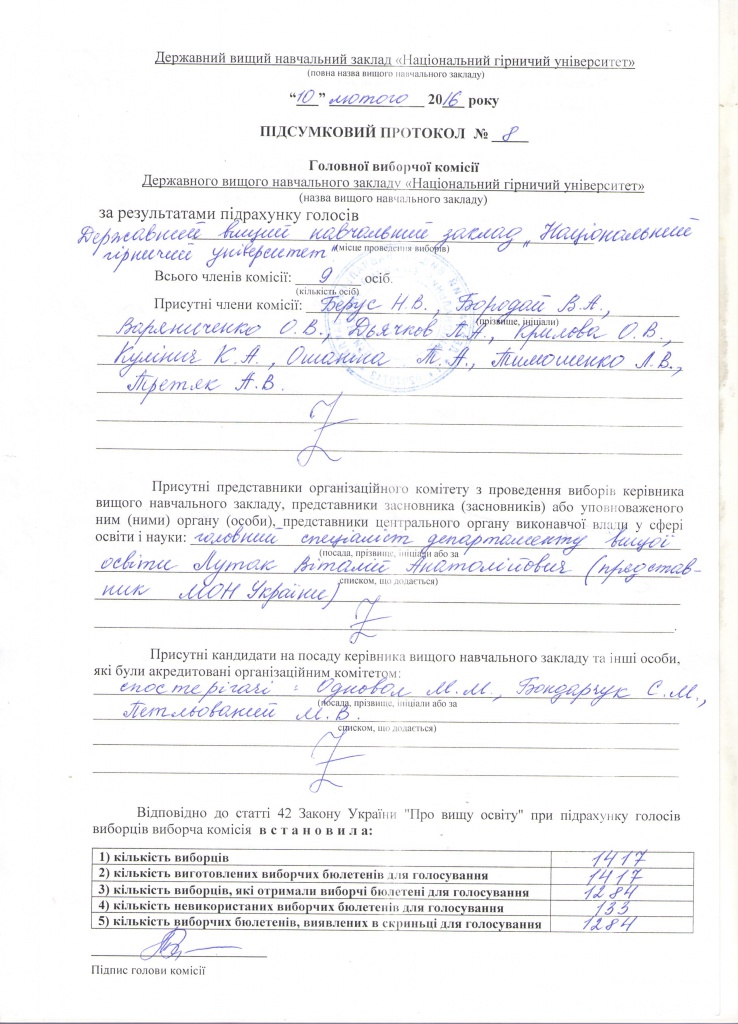 Державний вищий навчальний заклад «Національний гірничий університет»
(повна назва вищого навчального закладу)
“10” лютого 2016 року
ПІДСУМКОВИЙ ПРОТОКОЛ № 8
Головної виборчої комісії
Державного вищого навчального закладу «Національний гірничий університет»
(назва вищого навчального закладу)
за результатами підрахунку голосів
Державний вищий навчальний заклад „Національний
гірничий університет" (місце проведення виборів)
Всього членів комісії: 9 осіб.
(кількість осіб)
Присутні члени комісії: Берус Н.В., Бородай В.А.,
(прізвище, ініціали)
Варяниченко О.В., Дьячков П.А., Крилова О.В.,
Кулінич К.А., Ошаніна Т.А., Тимошенко Л.В.,
Третяк А.В.
Присутні представники організаційного комітету з проведення виборів керівника
вищого навчального закладу, представники засновника (засновників) або уповноваженого
ним (ними) органу (особи), представники центрального органу виконавчої влади у сфері
освіти і науки: головний спеціаліст департаменту вищої
(посада, прізвище, ініціали або за
освіти Лутак Віталій Анатолійович (представ-
списком, що додається)
ник МОН України)
Присутні кандидати на посаду керівника вищого навчального закладу та інші особи,
які були акредитовані організаційним комітетом:
спостерігачі: Одновол М.М., Бондарчук С.М.,
(посада, прізвище, ініціали або за
Петльований М.В.
списком, що додається)
Відповідно до статті 42 Закону України "Про вищу освіту" при підрахунку голосів
виборців виборча комісія встановила:
1) кількість виборців 1417
2) кількість виготовлених виборчих бюлетенів для голосування 1417
3) кількість виборців, які отримали виборчі бюлетені для голосування 1284
4) кількість невикористаних виборчих бюлетенів для голосування 133
5) кількість виборчих бюлетенів, виявлених в скриньці для голосування 1284
Підпис голови комісії